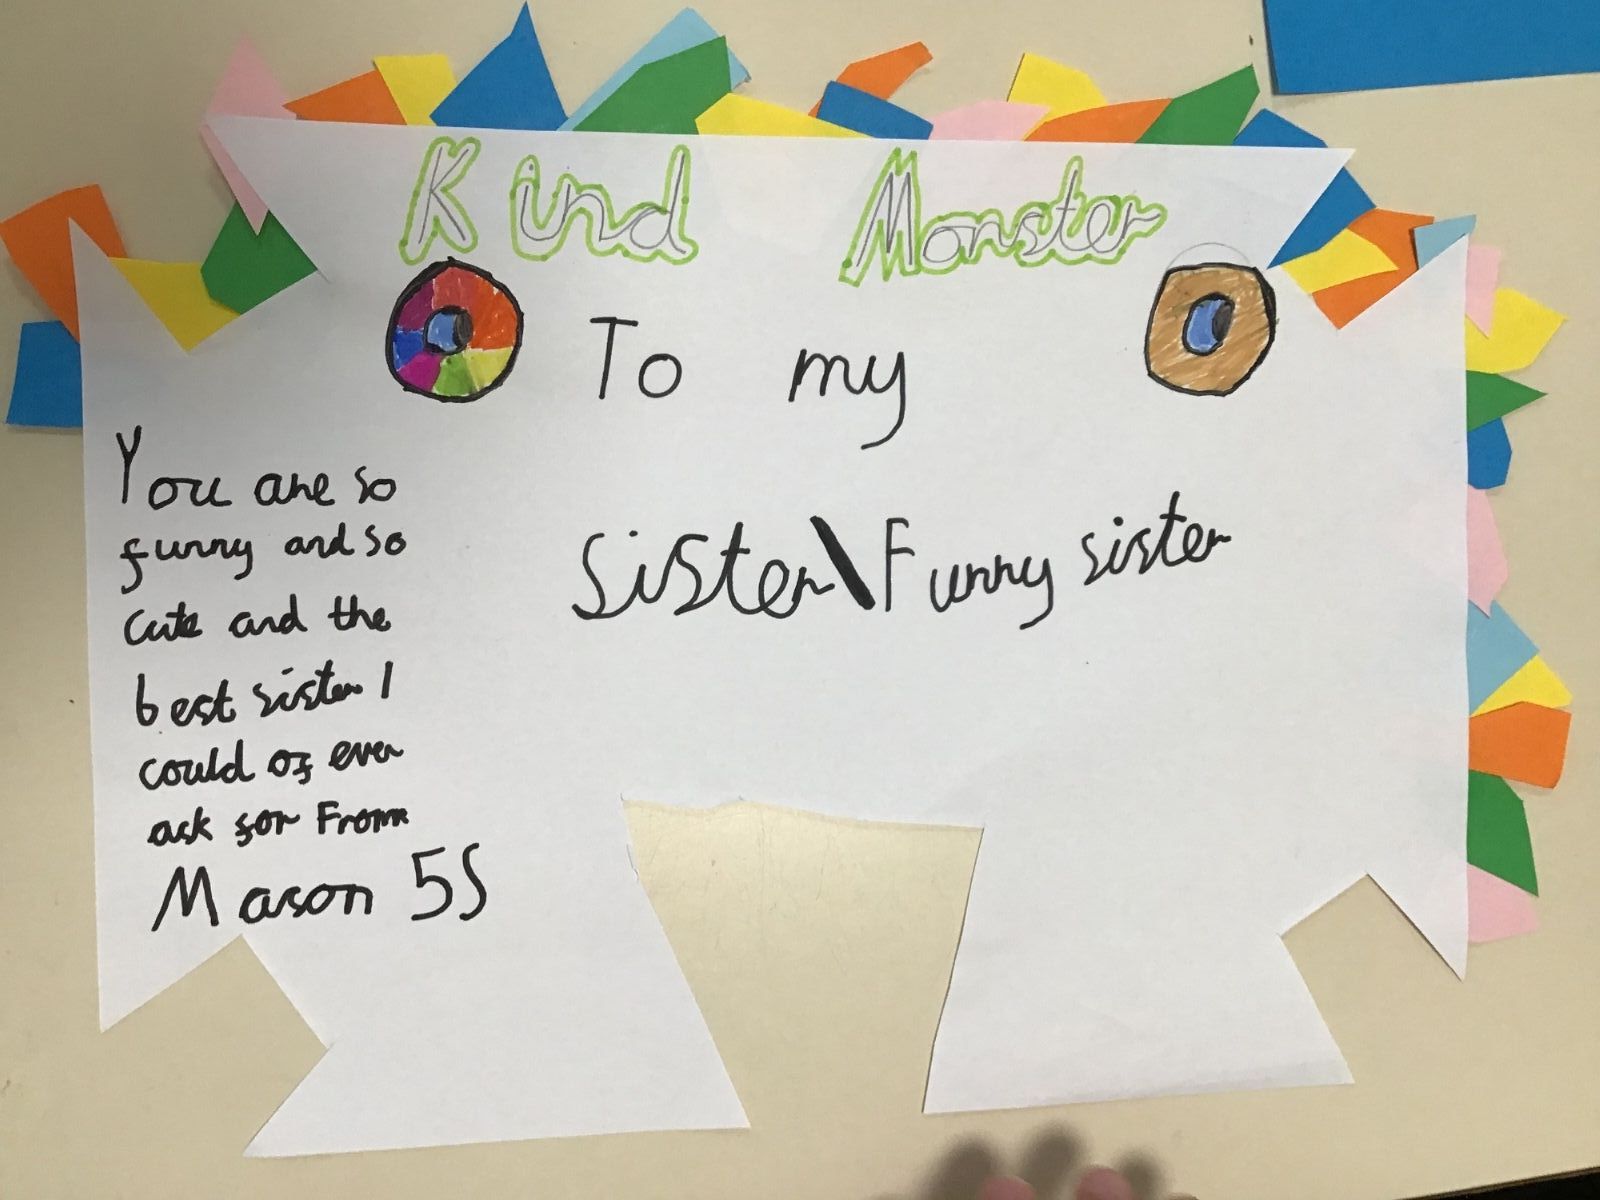 Kind Monster
To my
sister\Funny sister
You are so
funny and so
cute and the
best sister I
could of ever
ask for From
Mason 5S